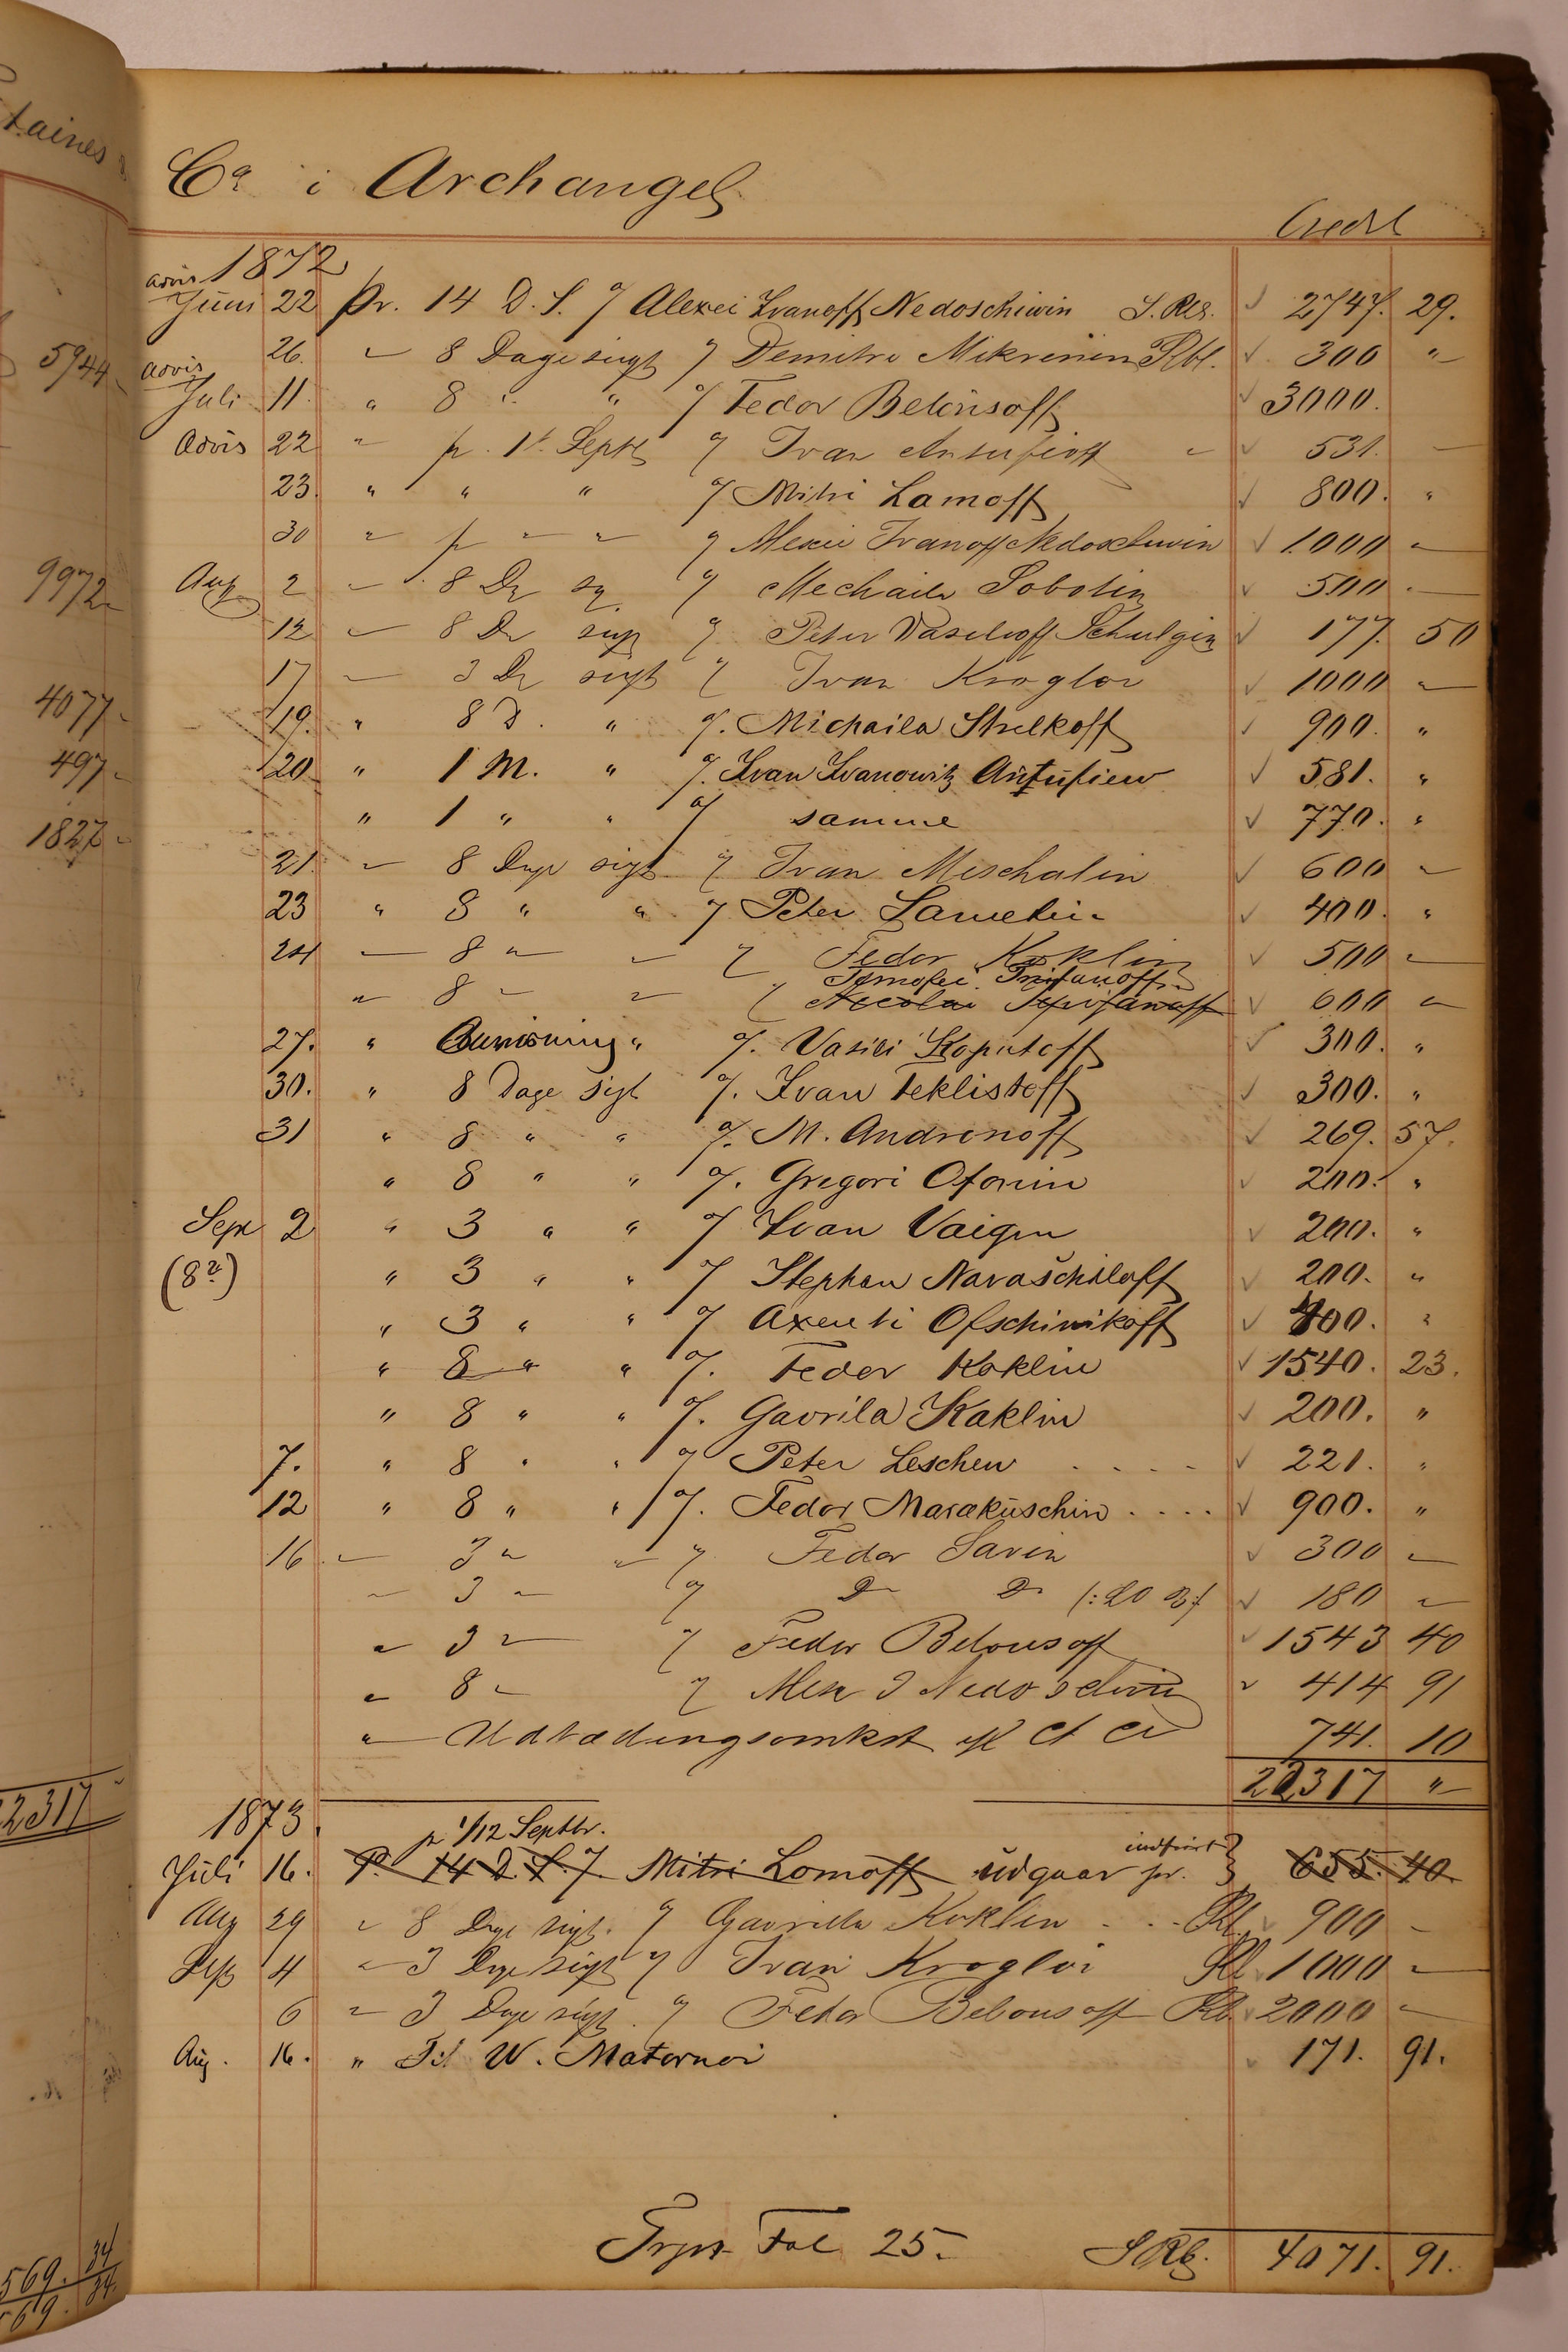 Ca i Archangel
Credit
1872
advis Juni 22 pr. 14 D. S. % Alexei Ivanoff Nedoschiwin S. Rbl. 2747. 29.
26. " 8 Dage sigt % Demitri Rbl. 300 "
advis Juli 11. " 8 " " % Fedor Belousoff 3000.
advis 22 " p. 1st Septr % Ivan Antufieff " 531. —
23. " " " % Mitri Lamoff 800. "
30 " p " " % Alexei Ivanoff Nedoschiwin 1000 "
Aug 2 " 8 Dg sg % Mechaila Sobolin 500. —
12 " 8 Dg sigt % Peter Vasilioff Schulgin 177. 50
17 " 3 Dg sigt % Ivan Kroglor 1000 "
19. " 8 D. " %. Michaila Strelkoff 900. "
20 " 1 M. " %. Ivan Ivanowitz Antufiew 581. "
" 1 " " % samme 770. "
21. " 8 Dage sigt % Ivan Mischalin 600 "
23 " 8 " " % Peter 400. "
24 " 8 " " % Fedor Koklin 500 "
Timofei Trifanoff
" 8 " " % Nicolai Trifanoff 600 "
27. " Anvisning " %. Vasili Koputoff 300. "
30. " 8 Dage sigt %. Ivan Feklistoff 300. "
31 " 8 " " %. M. Andronoff 269. 57.
" 8 " " %. Gregori Ofonin 200. "
Sept 2 " 3 " " % Ivan Vaigin 200. "
(8de) " 3 " " % Stephan Navaschiloff 200. "
" 3 " " % Axenti Ofschinikoff 400. "
" 8 " " %. Fedor Koklin 1540. 23.
" 8 " " %. Gavrila Kaklin 200. "
7. " 8 " " % Peter Leschew . . . . 221. "
12 " 8 " " %. Fedor Marakuschin . . . . 900. "
16. " 3 " " % Fedor Savin 300 "
" 3 " % Do Do 180 "
" 3 " % Fedor Belousoff 1543 40
" 8 " % Alex I Nedoschivin 414 91
" Udrædningsomkst 741. 10
22317 "
1873.
p 1/12 Septbr.
Juli 16. P. 14 D. S. % Mitri Lomoff udgaar indfriet pr. } 655. 40.
Aug 29 " 8 Dage sigt. % Gavrilla Koklin . . . Rbl 900 —
Sept 4 " 3 Dage sigt % Ivan Krogloi Rbl 1000 "
6 " 3 Dage sigt. % Fedor Belousoff Rbl. 2000 "
Aug. 16. " Til W. Maternoi 171. 91.
Trpt Fol 25. S Rbl. 4071. 91.
5944
9972
4077
497
1827
2317
569. 34
569. 34.